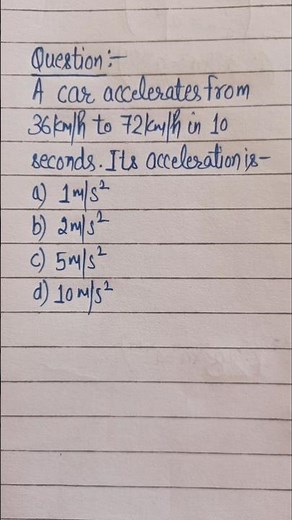 Question :-
A car accelerates from
36km/h to 72km/h in 10
seconds. Its acceleration is-
a) 1m/s²
b) 2m/s²
c) 5m/s²
d) 10m/s²